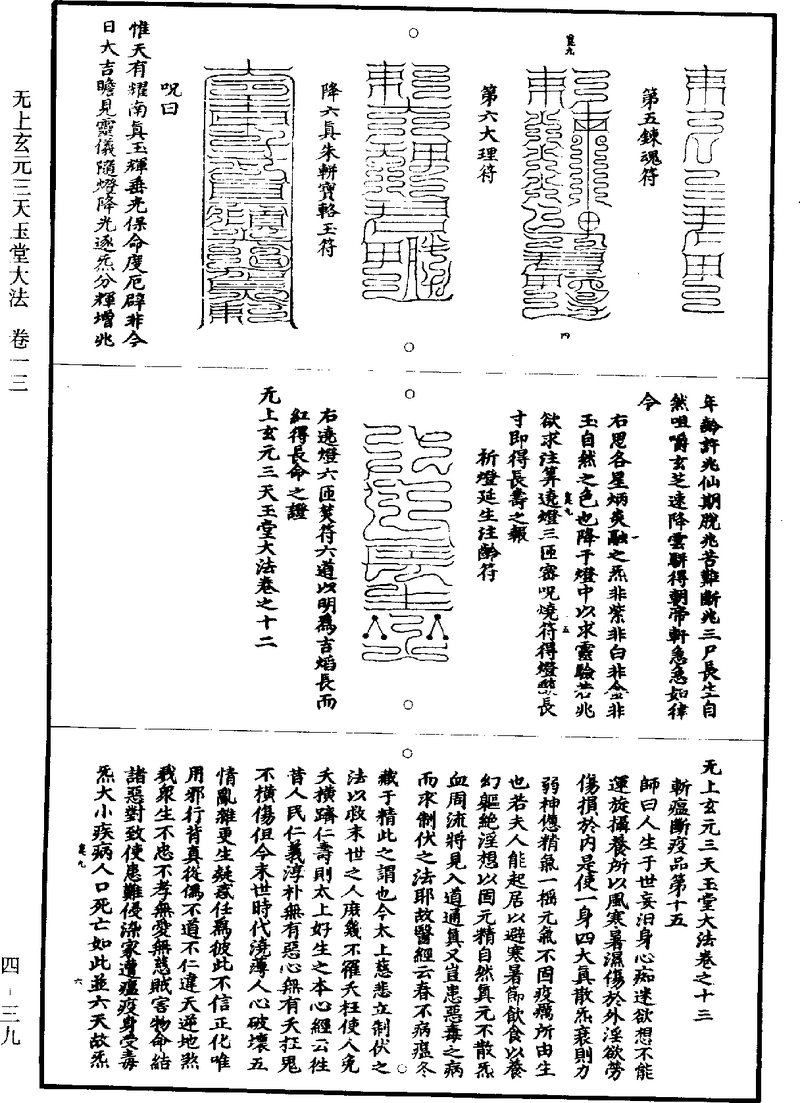 第五鍊魂符
第六大理符
降六真朱軿寶輅玉符
呪曰
惟天有耀南真玉輝垂光保命度厄辟非今
日大吉瞻見靈儀隨燈降光逐炁分輝增兆
年齡許兆仙期脫兆苦難斷兆三尸長生自
然咀嚼玄芝速降雲軿得朝帝軒急急如律
令
右思各星炳炎融之炁非紫非白非金非
玉自然之色也降于燈中以求靈驗若兆
欲求注算遶燈三匝密呪燒符得燈𦦨長
寸即得長壽之報
祈燈延生注齡符
右遶燈六匝焚符六道以明為吉焰長而
紅得長命之證
无上玄元三天玉堂大法卷之十二
无上玄元三天玉堂大法卷之十三
斬瘟斷疫品第十五
師曰人生于世妄汩身心痴迷欲想不能
運旋攝養所以風寒暑濕傷於外淫欲勞
傷損於內是使一身四大真散炁衰則力
弱神憊精氣一搖元氣不固疫癘所由生
也若夫人能起居以避寒暑節飲食以養
幻軀絕淫想以固元精自然真元不散炁
血周流將見入道通真又豈患惡毒之病
而求制伏之法耶故醫經云春不病瘟冬
藏于精此之謂也今太上慈悲立制伏之
法以救末世之人庶幾不罹夭枉使人免
夭橫躋仁壽則太上好生之本心經云往
昔人民仁義淳朴無有惡心無有夭枉鬼
不橫傷但今末世時代澆薄人心破壞五
情亂雜更生疑惑任為彼此不信正化唯
用邪行背真從偽不道不仁違天逆地煞
我眾生不忠不孝無愛無慈賊害物命結
諸惡對致使患難侵染家遭瘟疫身受毒
炁大小疾病人口死亡如此並六天故炁
无上玄元三天玉堂大法　卷一三
四－三九